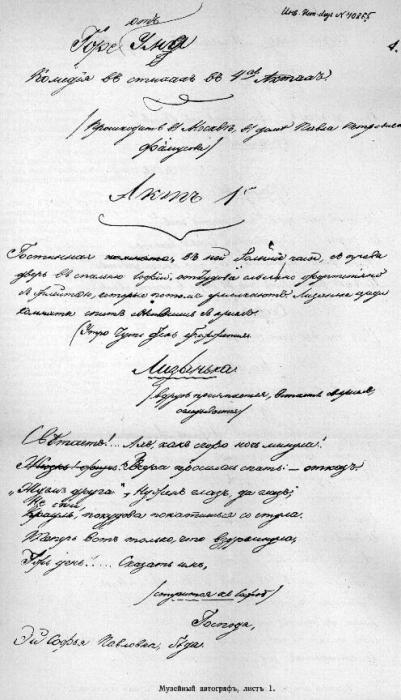 Инв. №40255
1.
отъ
Горе Ума
Комедія въ стихахъ въ 4хъ Актахъ.
(Происходитъ въ Москвѣ, въ домѣ Павла
Фамусова)
Актъ 1й
Гостинная комната, въ ней большіе часы, съ права
дверь въ спальню Софьи, откудова слышно фортопіяно
съ флейтою, которыя потомъ умолкаютъ. Лизанька среди
комнаты спитъ свѣсившись съ креселъ.
(Утро Чуть день брезжится)
Лизанька
(вдругъ просыпается, встаетъ съ креселъ,
оглядывается)
Свѣтаетъ!... Ахъ, какъ скоро ночь минула!
Вчера просилась спать: - отказъ.
"Ждемъ друга", Нуженъ глазъ, да глазъ;
Не спи,
покудова не скатишься со стула.
Теперь вотъ только, что вздремнула,
Ужь день!.... Сказать имъ,
(стучится къ Софьѣ)
Господа,
Эй Софья Павловна, бѣда.
Музейный автографъ, листъ 1.